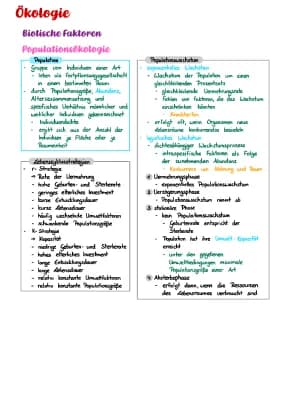 Ökologie
Biotische Faktoren
Populationsökologie
Population
- Gruppe von Individuen einer Art
- leben als Fortpflanzungsgesellschaft
in einem bestimmten Raum
- durch Populationsgröße, Abundanz,
Alterszusammensetzung und
spezifisches Verhältnis männlicher und
weiblicher Individuen gekennzeichnet
- Individuendichte
- ergibt sich aus der Anzahl der
Individuen je Fläche oder je
Raumeinheit
Lebenszyklusstrategien
- r-Strategie
→ Rate der Vermehrung
- hohe Geburten- und Sterberate
- geringes elterliches Investment
- kurze Entwicklungsdauer
- kurze Lebensdauer
- häufig wechselnde Umweltfaktoren
- schwankende Populationsgröße
- K-Strategie
→ Kapazität
- niedrige Geburten- und Sterberate
- hohes elterliches Investment
- lange Entwicklungsdauer
- lange Lebensdauer
- relativ konstante Umweltfaktoren
- relativ konstante Populationsgröße
Populationswachstum
exponentielles Wachstum
- Wachstum der Population um einen
gleichbleibenden Prozentsatz
- gleichbleibende Vermehrungsrate
- fehlen von Faktoren, die das Wachstum
einschränken könnten
- erfolgt oft, wenn Organismen neue
Lebensräume konkurrenzlos besiedeln
logistisches Wachstum
- dichteabhängiger Wachstumsprozess
- intraspezifische Faktoren als Folge
der zunehmenden Abundanz
- Konkurrenz um Nahrung und Raum
① Vermehrungsphase
- exponentielles Populationswachstum
② Verzögerungsphase
- Populationswachstum nimmt ab
③ stationäre Phase
- kein Populationswachstum
- Geburtenrate entspricht der
Sterberate
- Population hat ihre Umwelt-Kapazität
erreicht
- unter den gegebenen
Umweltbedingungen maximale
Populationsgröße einer Art
④ Absterbephase
- erfolgt dann, wenn die Ressourcen
des Lebensraumes verbraucht sind